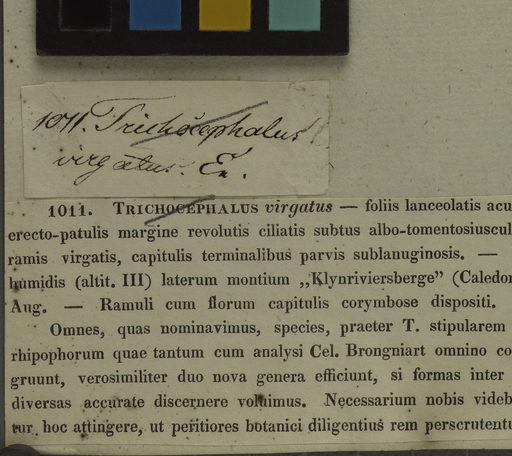 1011. Trichocephalus
virgatus. E.
1011. TRICHOCEPHALUS virgatus — foliis lanceolatis acu
erecto-patulis margine revolutis ciliatis subtus albo-tomentosiuscul
ramis virgatis, capitulis terminalibus parvis sublanuginosis. —
humidis (altit. III) laterum montium „Klynriviersberge” (Caledon
Aug. — Ramuli cum florum capitulis corymbose dispositi.
Omnes, quas nominavimus, species, praeter T. stipularem
rhipophorum quae tantum cum analysi Cel. Brongniart omnino co
gruunt, verosimiliter duo nova genera efficiunt, si formas inter
diversas accurate discernere volumus. Necessarium nobis videb
tur hoc attingere, ut peritiores botanici diligentius rem perscrutentu